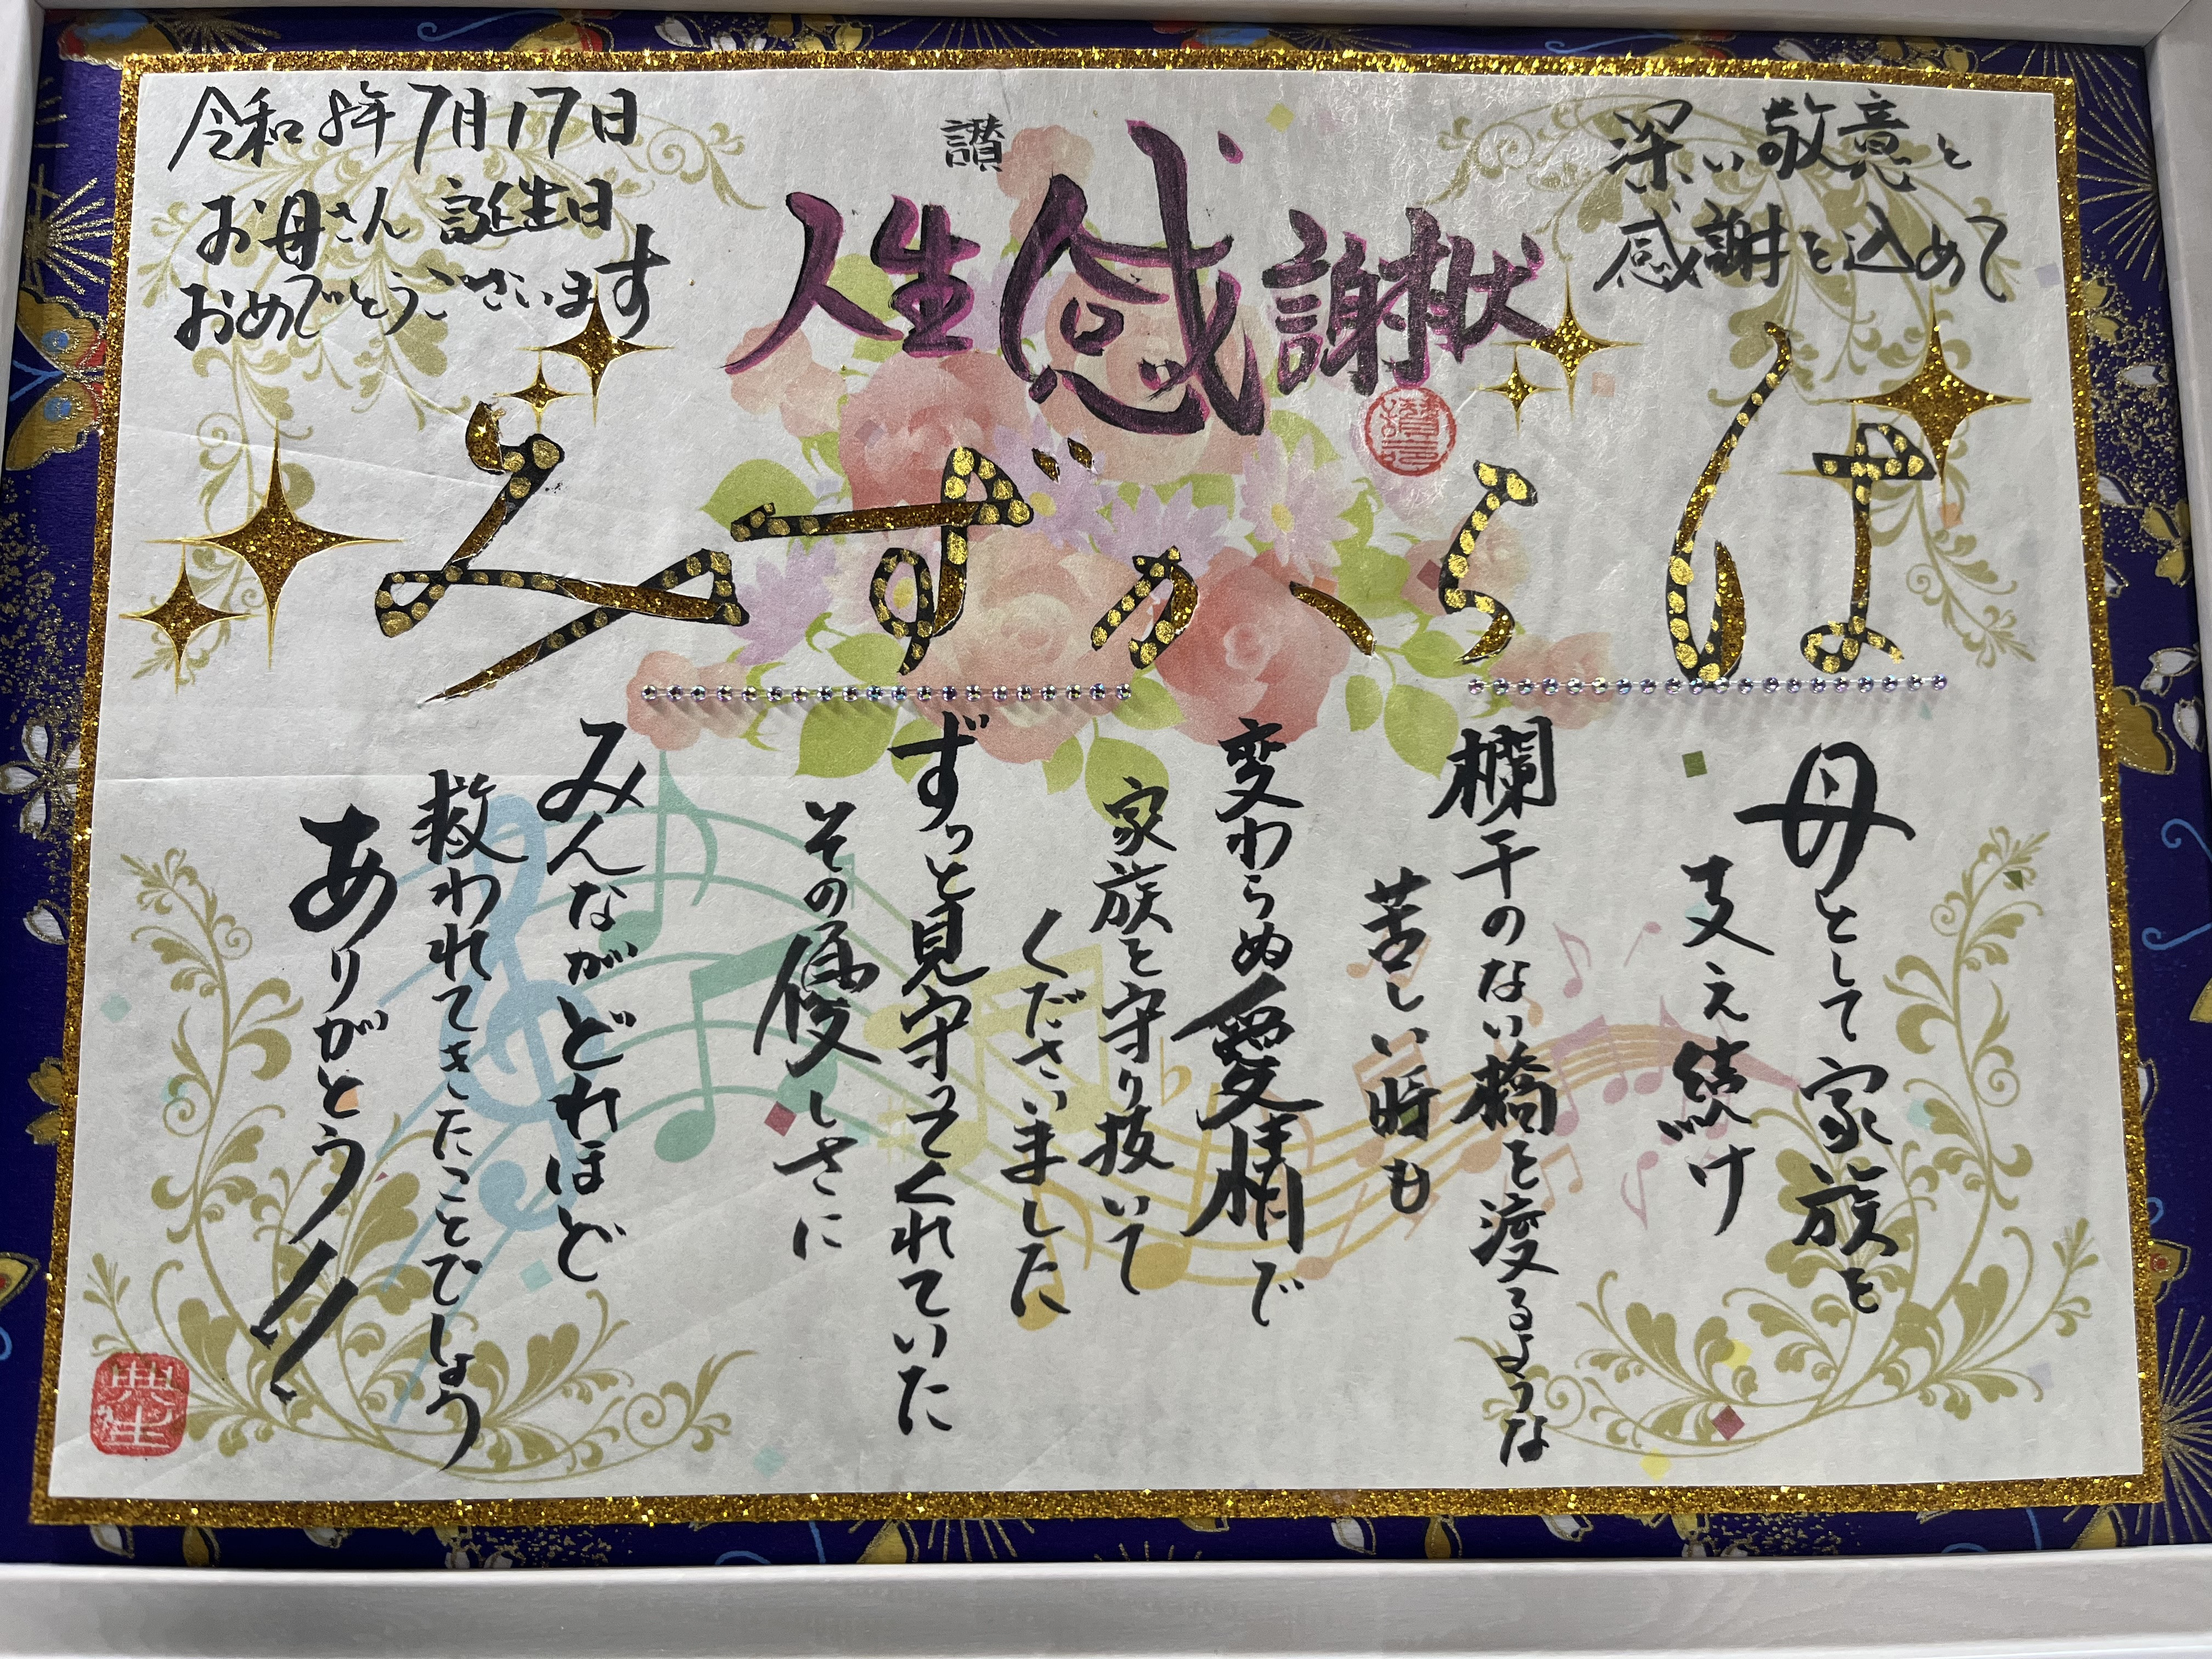 深い敬意と
感謝を込めて
讃
人生感謝状
はらかずみ
令和8年7月17日
お母さん 誕生日
おめでとうございます
母として家族を
支え続け
欄干のない橋を渡るような
苦しい時も
変わらぬ愛情で
家族を守り抜いて
くださいました
ずっと見守ってくれていた
その優しさに
みんながどれほど
救われてきたことでしょう
ありがとう!!
典生